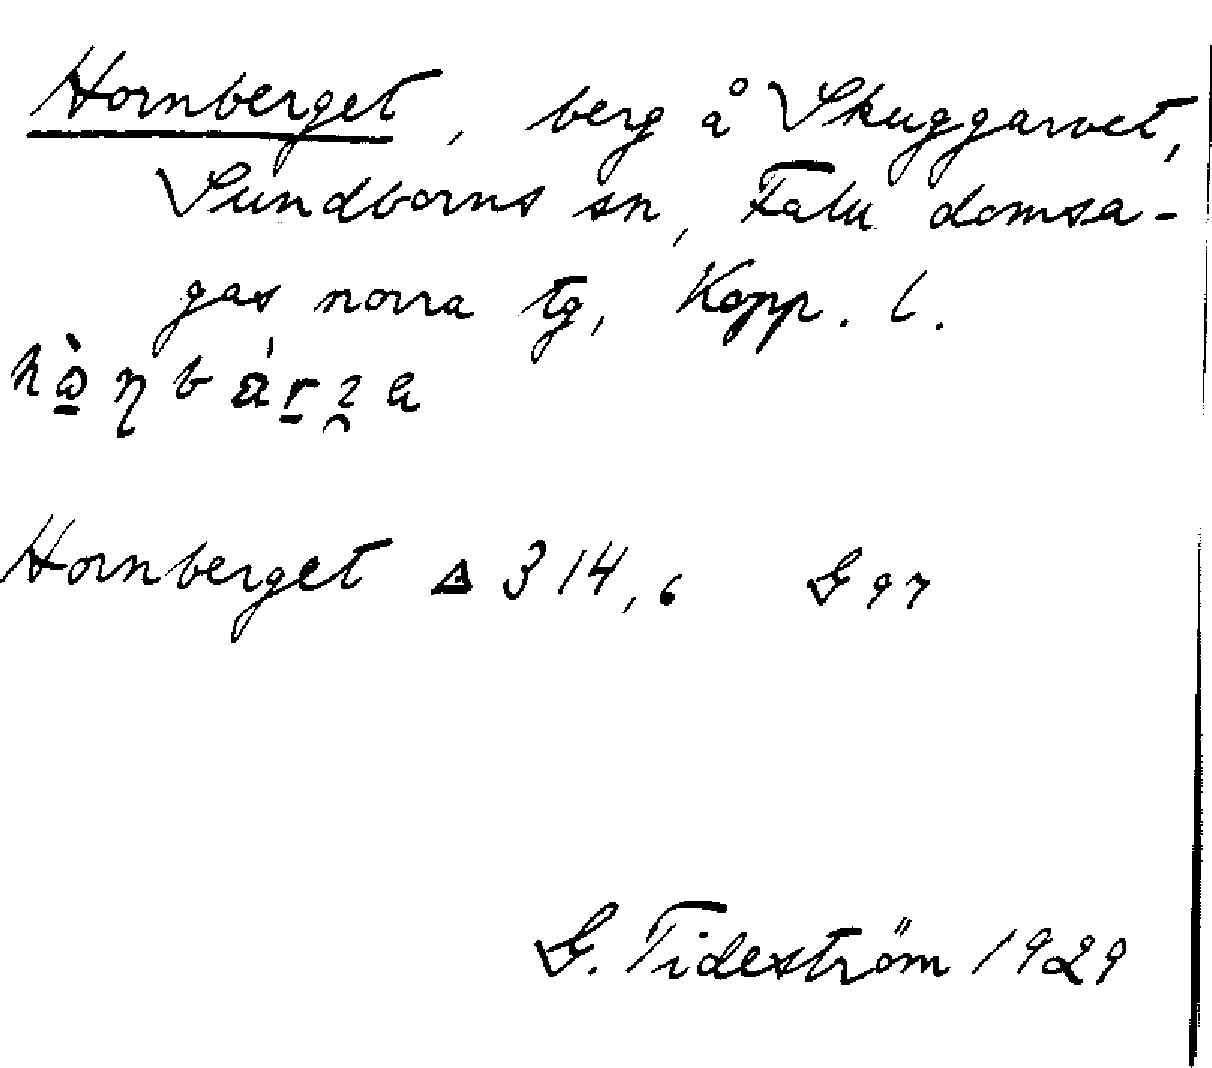 Hornberget, berg å Skuggarvet,
Sundborns sn, Falu domsa-
gas norra tg, Kopp. l.
Hornberget △ 314,6 G 97
G. Tideström 1929